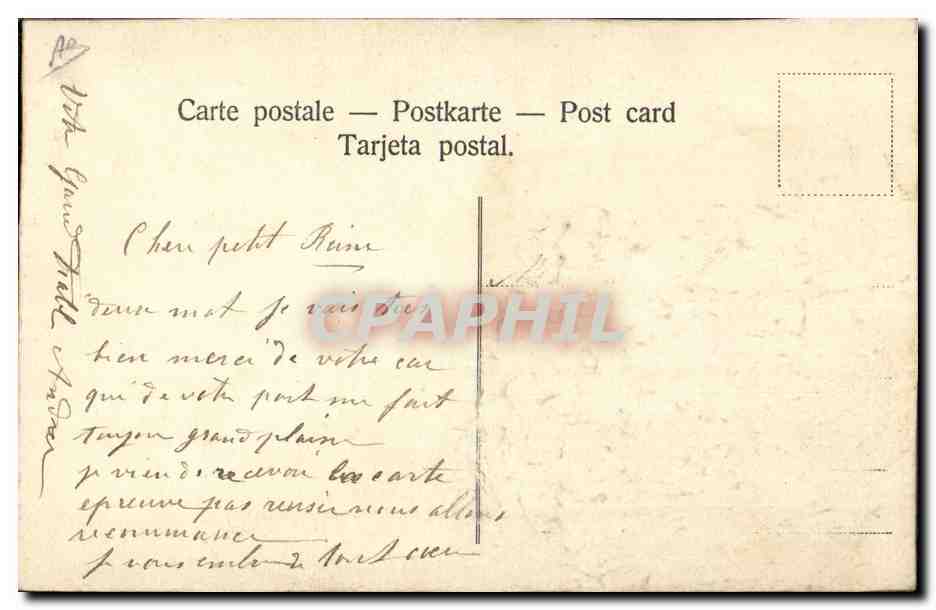 Carte postale — Postkarte — Post card
Tarjeta postal.
Cher petit Reine
deux mot je vais tres
bien merci de votre car
qui de votre part me fait
toujou grand plaisir
je viend recevoir la carte
epreuve pas reusir nous allons
recommancer
je vous embra de tout cœur
Votre Andrée
CPAPHIL